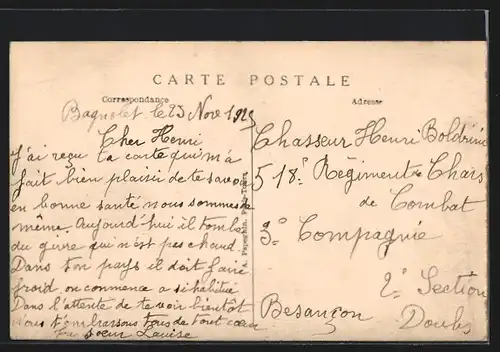 CARTE POSTALE
Correspondance
Adresse
Bagnolet le 23 Nov 192
Cher Henri
J'ai reçu ta carte qui m'a
fait bien plaisir de te savoir
en bonne santé nous sommes de
même. Aujourd'hui il tombe
du givre qui n'est pas chaud
Dans ton pays il doit faire
froid on commence a s'habitué
Dans l'attente de te voir bientôt
Nous t'embrassons tous de tout cœur
Ta sœur Louise
Chasseur Henri Boldrini
518e Régiment Chars
de Combat
3e Compagnie
2e Section
Besançon Doubs